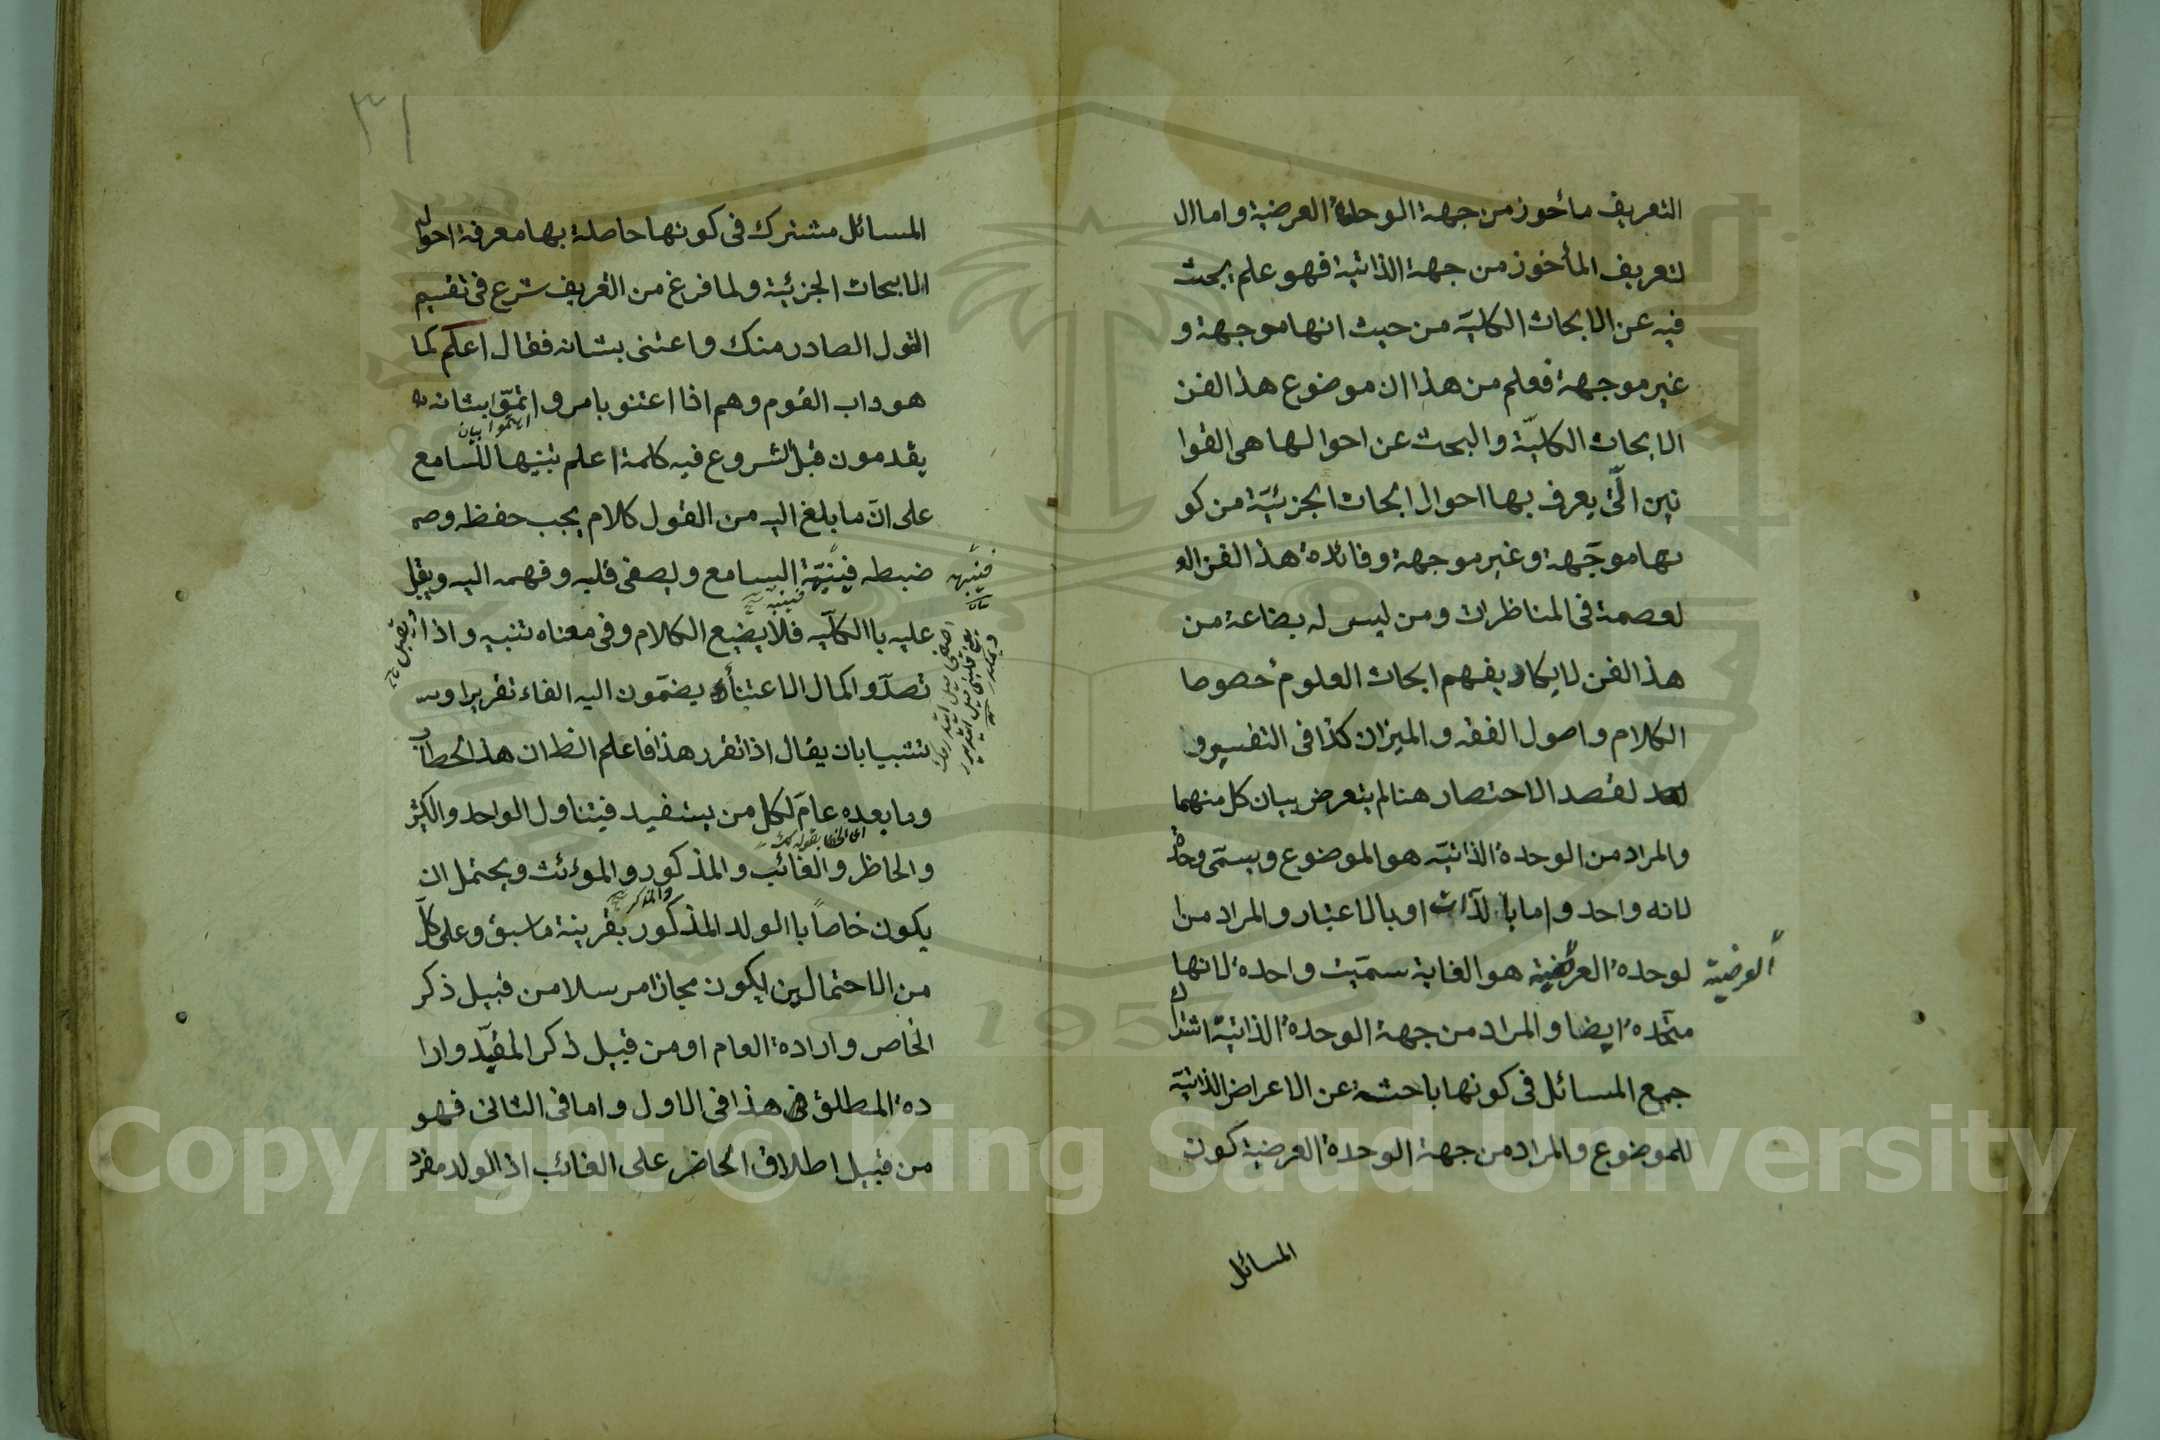 التعريف مأخوز من جهة الوحدة العرضية واماال
لتعريف المأخوز من جهة الذاتية فهو علم يبحث
فيه عن الابحاث الكلية من حيث انها موجهة و
غير موجهة فعلم من هذا ان موضوع هذ الفن
الابحاث الكليّة والبحث عن احوالها هى القوا
نين الّتى يعرف بها احوال ابحاث الجزئيّة من كو
نها موجّهة وغير موجهة وفائدة هذ الفن الو
لعصمة فى المناظرات ومن ليس له بضاعة من
هذ الفن لايكاد يفهم ابحاث العلوم خصوصا
الكلام واصول الفقه والميزان كذا فى التفسير و
لقصد الاختصار هنا لم يتعرض ببيان كل منهما
والمراد من الوحدة الذاتيّة هو الموضوع ويسمّى وحدة
لانه واحد واما بالذّات او بالاعتبار والمراد من ا
لوحدة العرضية هو الغاية سمّيت واحدة لانها
العرضية
متحدة ايضا والمراد من جهة الوحدة الذاتية اشتراك
جميع المسائل فى كونها باحثة عن الاعراض الذاتية
للموضوع والمراد من جهة الوحدة العرضية كون
المسائل
٣١
المسائل مشترك فى كونها حاصلة بها معرفة احوال
الابحاث الجزئية ولما فرغ من التعريف شرع فى تقسيم
القول الصادر منك واعتنى بشانه فقال اعلم كما
هو داب القوم وهم اذا اعتنو بامر و اتمّوا بشانه
اهتموا بيان
يقدمون قبل الشروع فيه كلمة اعلم تنبيها للسامع
على انّ ما بلغ اليه من القول كلام يجب حفظه وصه
ضبطه فينبّهة السامع ويصغى قلبه وفهمه اليه ويقبل
فينبّه
عليه باالكلّيه فلا يضيع الكلام وفى معناه تنبيه واذا
تصدّوا كمال الاعتناء يضمّون اليه الفاء تقريرا وسه
تنبيا بان يقال اذا تقرر هذا فاعلم الظ ان هذ الخطاب
وما بعده عامّ لكل من يستفيد فيتناول الواحد والكثير
والحاظر والغائب والمذكور والموءنث ويحتمل ان
والمذكر
يكون خاصاً باالولد المذكور بقرينة ماسبق وعلى كلّ
من الاحتمالين يكون مجازا مرسلا من قبيل ذكر
الخاص وارادة العام او من قبيل ذكر المقيّد وارا
دة المطلق هذا فى الاول واما فى الثانى فهو
من قبيل اطلاق الحاضر على الغائب اذ الولد مفرد
Copyright © King Saud University
1957